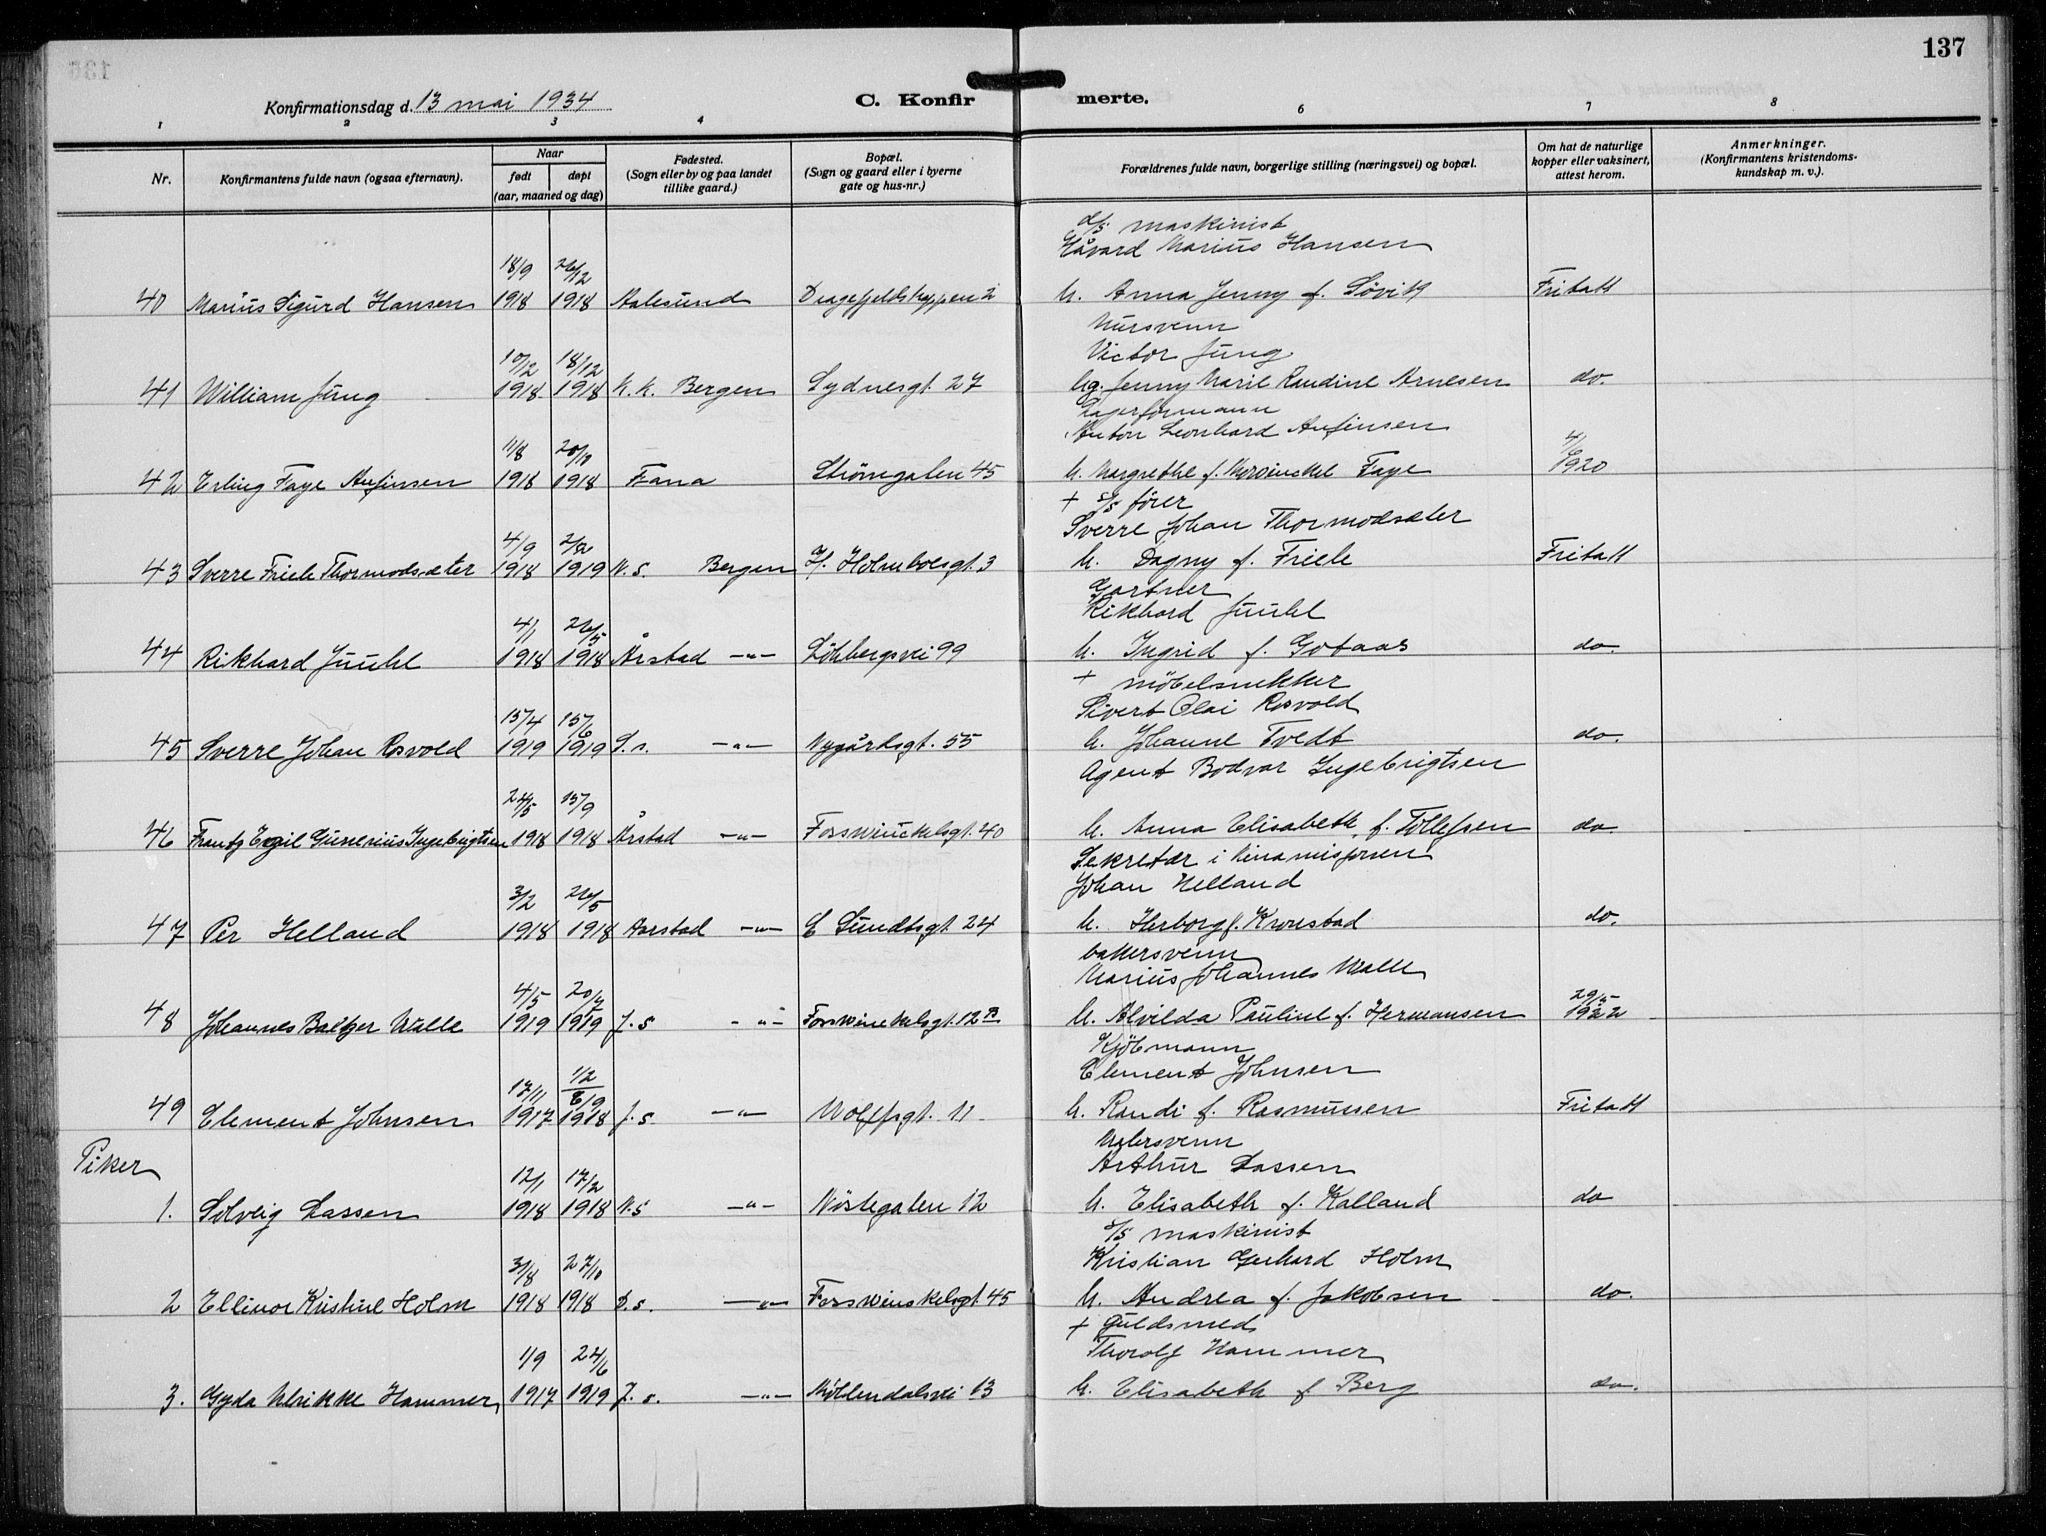 137
Konfirmationsdag d. 13 mai 1934
C. Konfir merte.
1 2 3 4 6 7 8
Nr.
Konfirmantens fulde navn (ogsaa efternavn).
Naar
født døpt
(aar, maaned og dag)
Fødested.
(Sogn eller by og paa landet
tillike gaard.)
Bopæl.
(Sogn og gaard eller i byerne
gate og hus-nr.)
Forældrenes fulde navn, borgerlige stilling (næringsvei) og bopæl.
Om hat de naturlige
kopper eller vaksinert,
attest herom.
Anmerkninger.
(Konfirmantens kristendoms-
kundskap m. v.).
d/s maskinist
Håvard Marius Hansen
18/9 26/12
40 Marius Sigurd Hansen 1918 1918 Aalesund Dragefjeldstrappen 2 h. Anna Jenny f. Sövik Fritatt
Mursvenn
Victor Jung
10/12 18/12
41 William Jung 1918 1918 N.k. Bergen Sydnesgt. 27 hg. Jenny Marie Randine Arnesen do.
Lagerformann
Anton Leonhard Anfinsen
11/8 20/10 4/6
42 Erling Faye Anfinsen 1918 1918 Fana Strömgaten 45 h. Margrethe f. Mowinckel Faye 1920
+ s/s fører
Sverre Johan Thormodsæter
4/9 2/2
43 Sverre Friele Thormodsæter 1918 1919 N.s. Bergen J. Holmboesgt. 3 h. Dagny f. Friele Fritatt
Gartner
Rikhard Juuhl
4/1 26/5
44 Rikhard Juuhl 1918 1918 Årstad -"- Løbbergsvei 99 h. Ingrid f. Gotaas do.
+ möbelsnekker
Sivert Olai Rosvold
15/4 15/6
45 Sverre Johan Rosvold 1919 1919 S.s. -"- Nygårdsgt. 55 h. Johanne Tvedt do.
Agent Bodvar Ingebrigtsen
24/5 15/9
46 Frantz Egil Gunerius Ingebrigtsen 1918 1918 Årstad -"- Fosswinckelsgt. 40 h. Anna Elisabeth f. Tollefsen do
Sekretær i Kinamisjonen
Johan Helland
3/2 26/5
47 Per Helland 1918 1918 Aarstad -"- E Sundtsgt. 24 h. Herborg f. Kronstad do.
bakersvenn
Marius Johannes Walle
4/5 20/7 29/5
48 Johannes Baltzer Walle 1919 1919 J.s -"- Fosswinckelsgt. 12 B h. Alvilda Pauline f. Hermansen 1922
Kjöbmann
Clement Johnsen
17/11 1/2 8/9
49 Clement Johnsen 1917 1918 J.s. -"- Wolffsgt. 11 h. Randi f. Rasmussen Fritatt
Piker
Malersvenn
Arthur Lassen
12/1 17/2
1. Solveig Lassen 1918 1918 N.s -"- Nöstegaten 12 h. Elisabeth f. Kalland do
s/s maskinist
Kristian Gerhard Holm
31/8 27/10
2 Ellinor Kristine Holm 1918 1918 D.s. -"- Fosswinckelsgt. 45 h. Andrea f. Jakobsen do.
+ Guldsmed
Thorolf Hammer
1/9 24/6
3. Gyda Ulrikke Hammer 1917 1919 J.s. -"- Möllendalsvei 13 h. Elisabeth f Berg do.